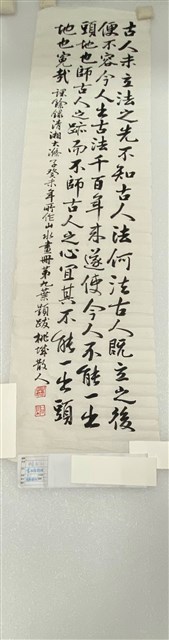 古人未立法之先不知古人法何法古人既立之後
便不容今人出古法千百年來遂使今人不能一出
頭地也師古人之跡而不師古人之心宜其不能一出頭
地也冤哉 課餘錄清湘大滌子癸未年所作山水畫冊第九葉題跋 桃潭散人